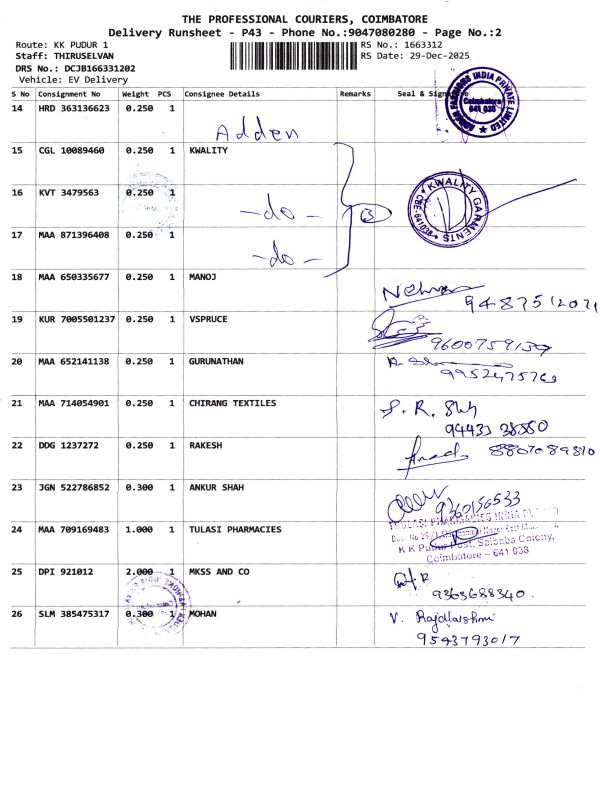 THE PROFESSIONAL COURIERS, COIMBATORE
Delivery Runsheet - P43 - Phone No.:9047080280 - Page No.:2
Route: KK PUDUR 1
RS No.: 1663312
Staff: THIRUSELVAN
RS Date: 29-Dec-2025
DRS No.: DCJB166331202
Vehicle: EV Delivery
S No Consignment No Weight PCS Consignee Details Remarks Seal &
14 HRD 363136623 0.250 1
Adden
INDIA PRIVATE LIMITED
Coimbatore
641 038
15 CGL 10089460 0.250 1 KWALITY
16 KVT 3479563 0.250 1
- do -
3
KWALITY GARMENTS
17 MAA 871396408 0.250 1
- do -
18 MAA 650335677 0.250 1 MANOJ
19 KUR 7005501237 0.250 1 VSPRUCE
9600759139
20 MAA 652141138 0.250 1 GURUNATHAN
21 MAA 714054901 0.250 1 CHIRANG TEXTILES
S. R.
94433 38880
22 DDG 1237272 0.250 1 RAKESH
8807089810
23 JGN 522786852 0.300 1 ANKUR SHAH
9360156533
24 MAA 709169483 1.000 1 TULASI PHARMACIES
THULASI PHARMACIES INDIA
K K Pudur Post, Saibaba Colony,
Coimbatore – 641 038
25 DPI 921012 2.000 1 MKSS AND CO
9363688340.
26 SLM 385475317 0.300 1 MOHAN
V. Rajalakshmi
9543793017